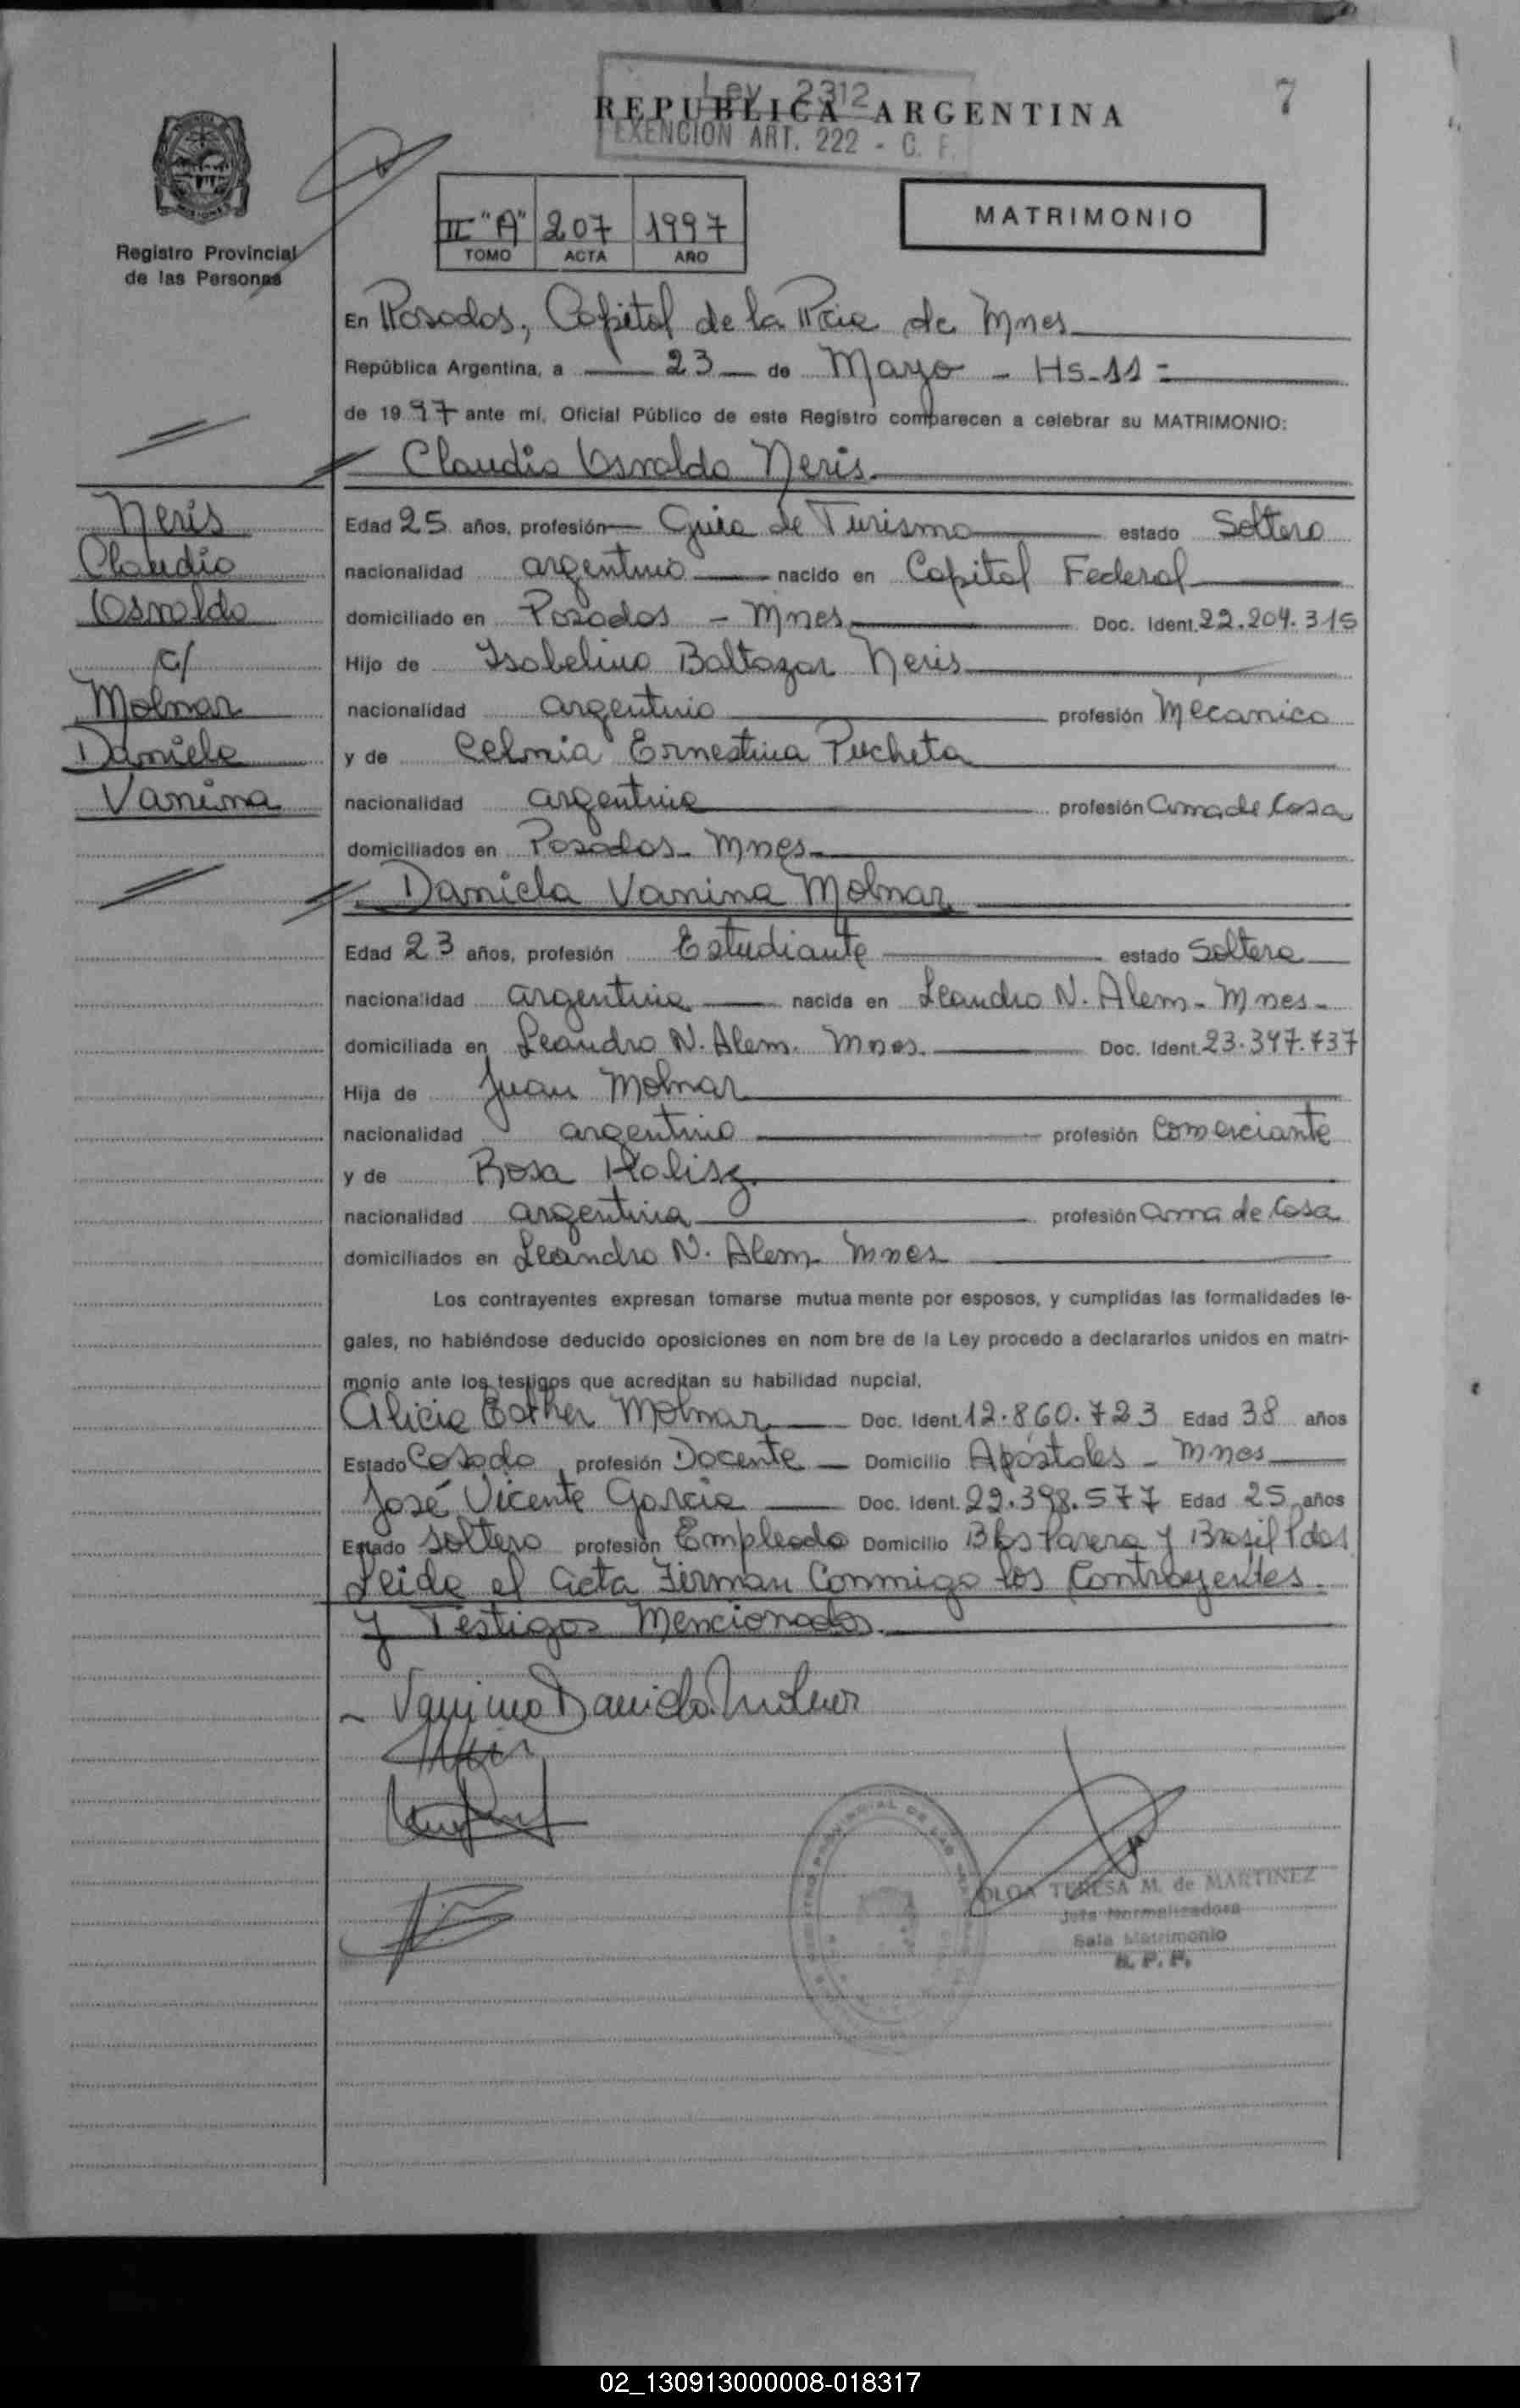 7
Ley 2312
REPUBLICA ARGENTINA
EXENCION ART. 222 - C. F.
II "A" 207 1997
TOMO ACTA AÑO
MATRIMONIO
Registro Provincial
de las Personas
En Posadas, Capital de la Pcia de Mnes
República Argentina, a 23 de Mayo - Hs. 11 =
de 1997 ante mí, Oficial Público de este Registro comparecen a celebrar su MATRIMONIO:
Claudio Osvaldo Neris
Neris
Claudio
Osvaldo
c/
Molnar
Daniela
Vanina
Edad 25 años, profesión Guia de Turismo estado Soltero
nacionalidad argentino nacido en Capital Federal
domiciliado en Posadas - Mnes Doc. Ident. 22.204.315
Hijo de Isabelino Baltazar Neris
nacionalidad argentino profesión Mecanico
y de Ernestina Pucheta
nacionalidad argentina profesión ama de Casa
domiciliados en Posadas - Mnes -
Daniela Vanina Molnar
Edad 23 años, profesión Estudiante estado Soltera
nacionalidad argentina nacida en Leandro N. Alem - Mnes -
domiciliada en Leandro N. Alem. Mnes. Doc. Ident. 23.347.737
Hija de Juan Molnar
nacionalidad argentino profesión Comerciante
y de Rosa Halisz
nacionalidad argentina profesión ama de Casa
domiciliados en Leandro N. Alem - Mnes
Los contrayentes expresan tomarse mutua mente por esposos, y cumplidas las formalidades le-
gales, no habiéndose deducido oposiciones en nom bre de la Ley procedo a declararlos unidos en matri-
monio ante los testigos que acreditan su habilidad nupcial.
Alicia Esther Molnar Doc. Ident. 12.860.723 Edad 38 años
Estado Casada profesión Docente Domicilio Apóstoles - Mnes
José Vicente Garcia Doc. Ident. 22.398.577 Edad 25 años
Estado Soltero profesión Empleado Domicilio Parera y Brasil Pdas
Leida el acta Firman Conmigo los Contrayentes
y Testigos Mencionados
Vanina Daniela Molnar
OLGA TERESA M. de MARTINEZ
Jefa Normalizadora
Sala Matrimonio
R. P. P.
02_130913000008-018317